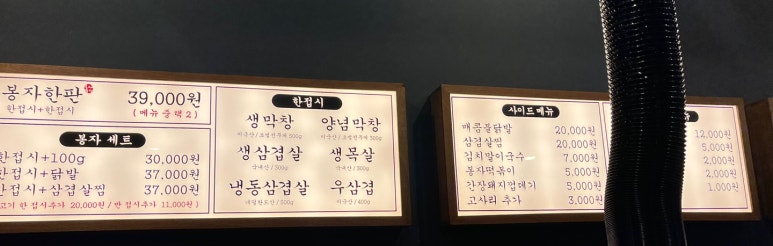 봉자한판
한접시+한접시
39,000원
(메뉴 중 택 2)
봉자 세트
한접시+100g 30,000원
한접시+닭발 37,000원
한접시+삼겹살찜 37,000원
고기 한 접시추가 20,000원 / 반 접시추가 11,000원)
한접시
생막창 양념막창
생삼겹살 생목살
국내산 / 300g
냉동삼겹살 우삼겹
사이드 메뉴
매콤불닭발 20,000원
삼겹살찜 20,000원
김치말이국수 7,000원
봉자떡볶이 5,000원
간장돼지껍데기 5,000원
고사리 추가 3,000원
12,000원
5,000원
2,000원
2,000원
1,000원